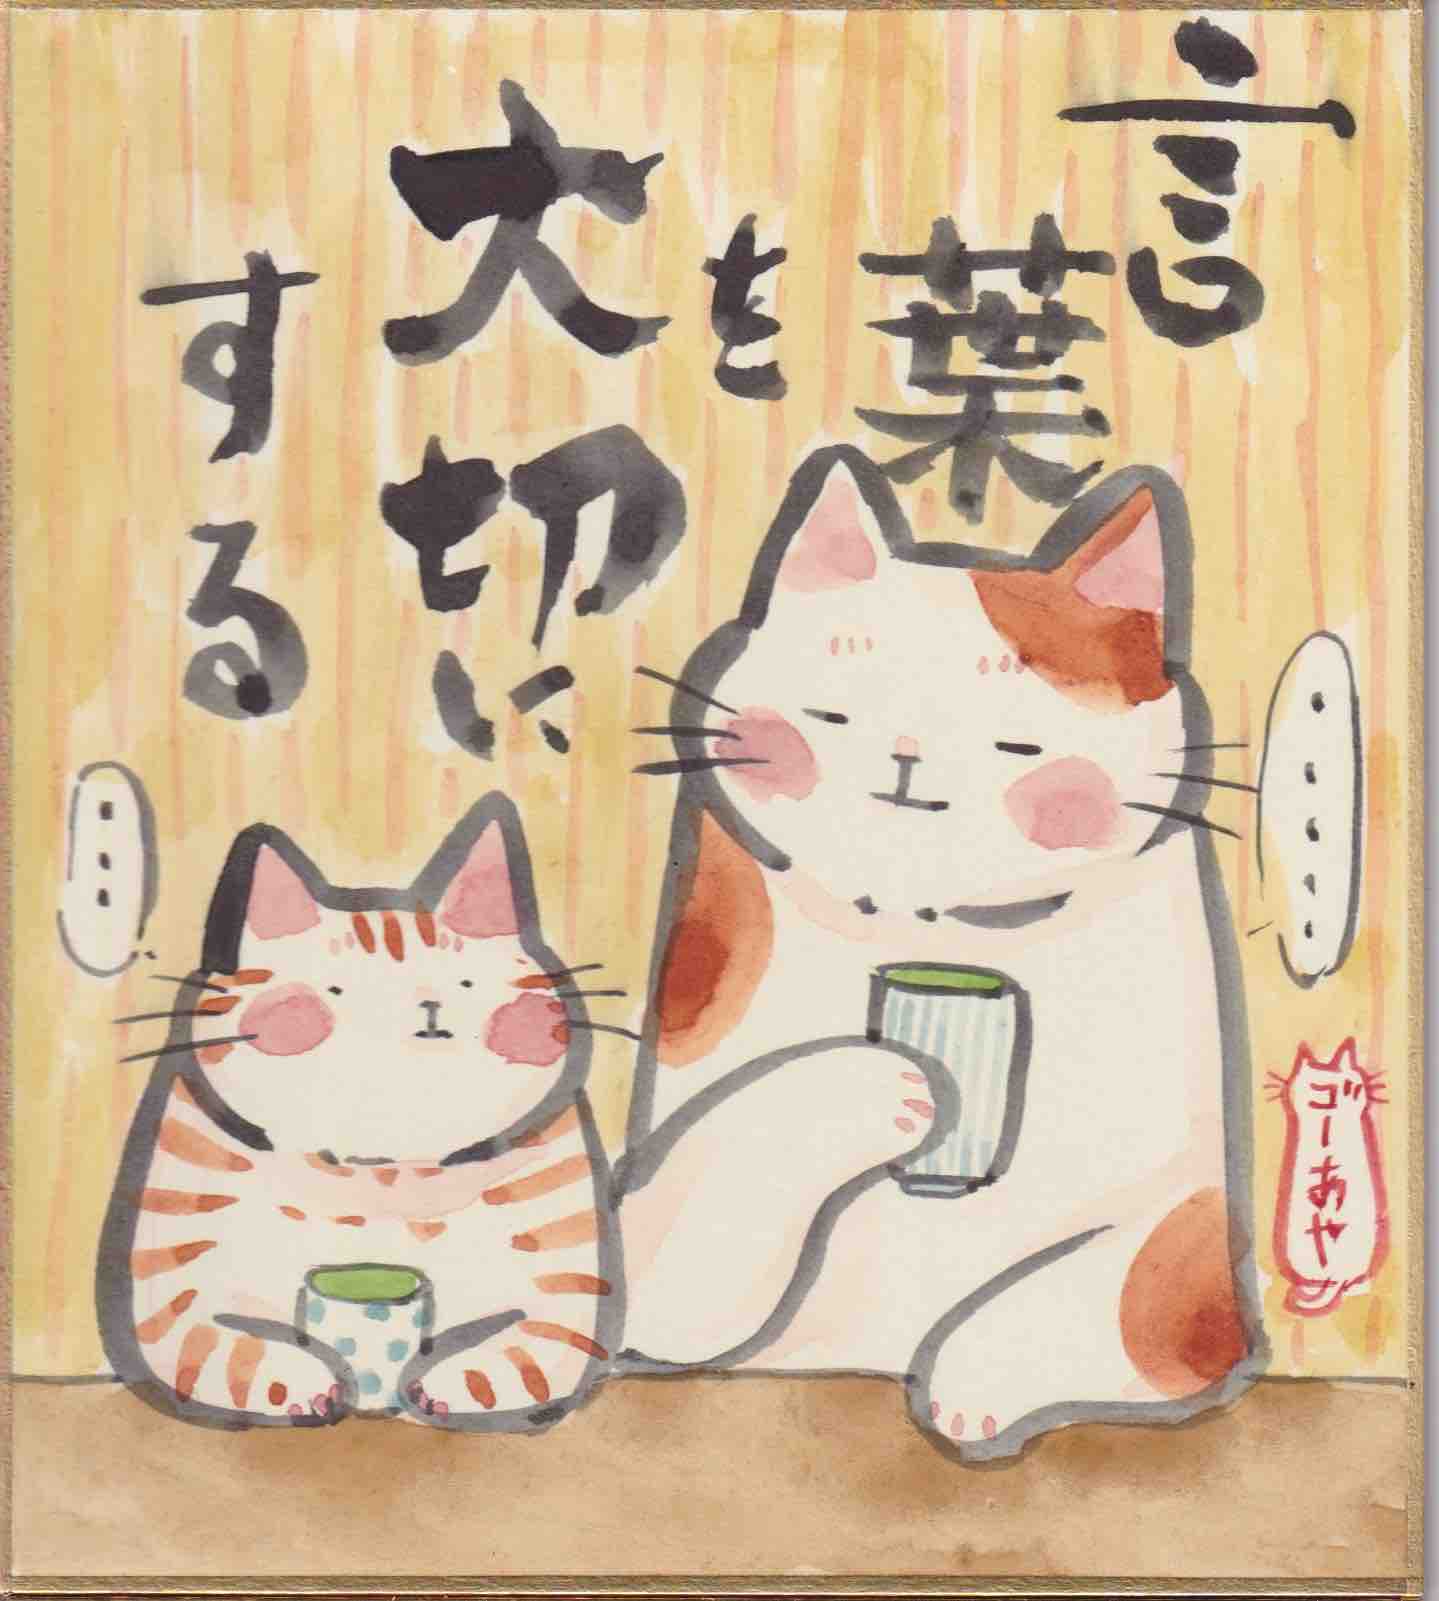 言葉を
大切に
する
・・・・・
・・・
ゴーあや